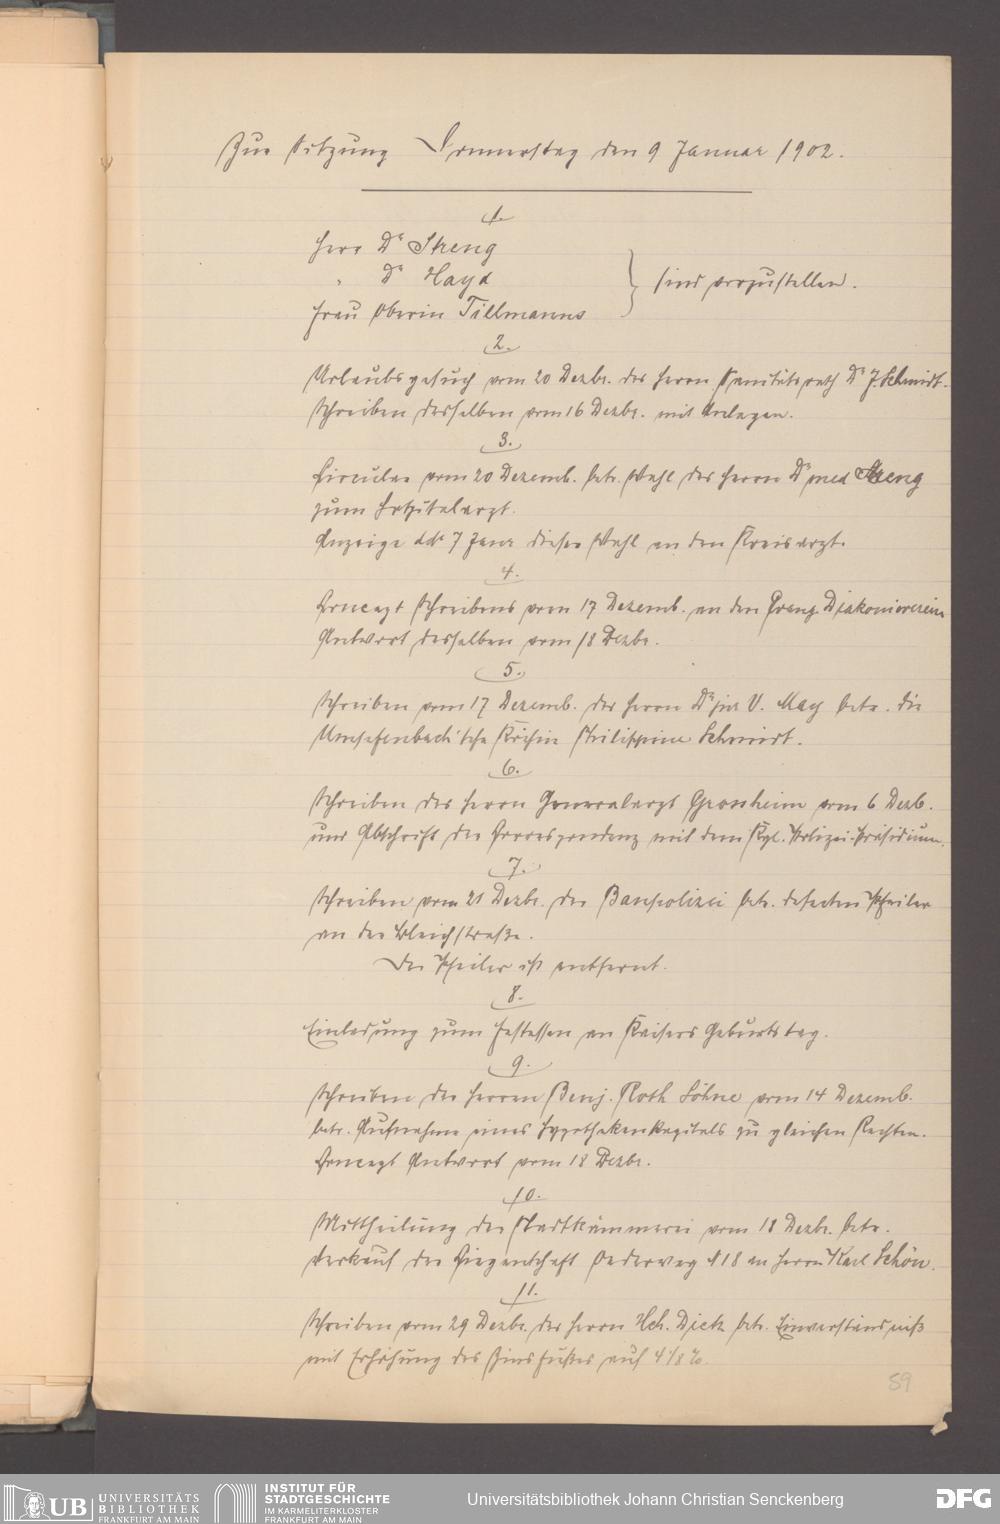 Zur Sitzung Donnerstag den 9 Januar 1902.
1.
Herr Dr Streng
" Dr Hayd } sind vorzustellen.
Frau Oberin Tillmanns
2.
Urlaubsgesuch vom 20 Dezbr. des Herrn Sanitätsrath Dr J. Schmidt.
Schreiben desselben vom 16 Dezbr. mit Anlagen.
3.
Circular vom 20 Dezemb. betr. Wahl des Herrn Dr med Streng
zum Hospitalarzt.
Anzeige dd 7 Janr dieser Wahl an den Kreisarzt.
4.
Concept Schreibens vom 17 Dezemb. an den Evang. Diakonieverein
Antwort desselben vom 18 Dezbr.
5.
Schreiben vom 17 Dezemb. des Herrn Dr jur V. May betr. die
Köchin Philippine Schmidt.
6.
Schreiben des Herrn Generalarzt Grossheim vom 6 Dezb.
und Abschrift der Correspondenz mit dem Kgl. Polizei-Präsidium.
7.
Schreiben vom 21 Dezbr. der Baupolizei betr. defecten Pfeiler
an der Bleichstraße.
Der Pfeiler ist entfernt.
8.
Einladung zum Festessen an Kaisers Geburtstag.
9.
Schreiben der Herren Benj. Roth Söhne vom 14 Dezemb.
betr. Aufnahme eines Hypothekenkapitals zu gleichen Rechten.
Concept Antwort vom 18 Dezbr.
10.
Mittheilung der Stadtkämmerei vom 18 Dezbr. betr.
Verkauf der Liegenschaft Oederweg 118 an Herrn Karl Schön.
11.
Schreiben vom 29 Dezbr. des Herrn Hch. Dietz betr. Einverständniß
mit Erhöhung des Zinsfußes auf 4 1/8 %.
59
UB UNIVERSITÄTS
BIBLIOTHEK
FRANKFURT AM MAIN
INSTITUT FÜR
STADTGESCHICHTE
IM KARMELITERKLOSTER
FRANKFURT AM MAIN
Universitätsbibliothek Johann Christian Senckenberg
DFG